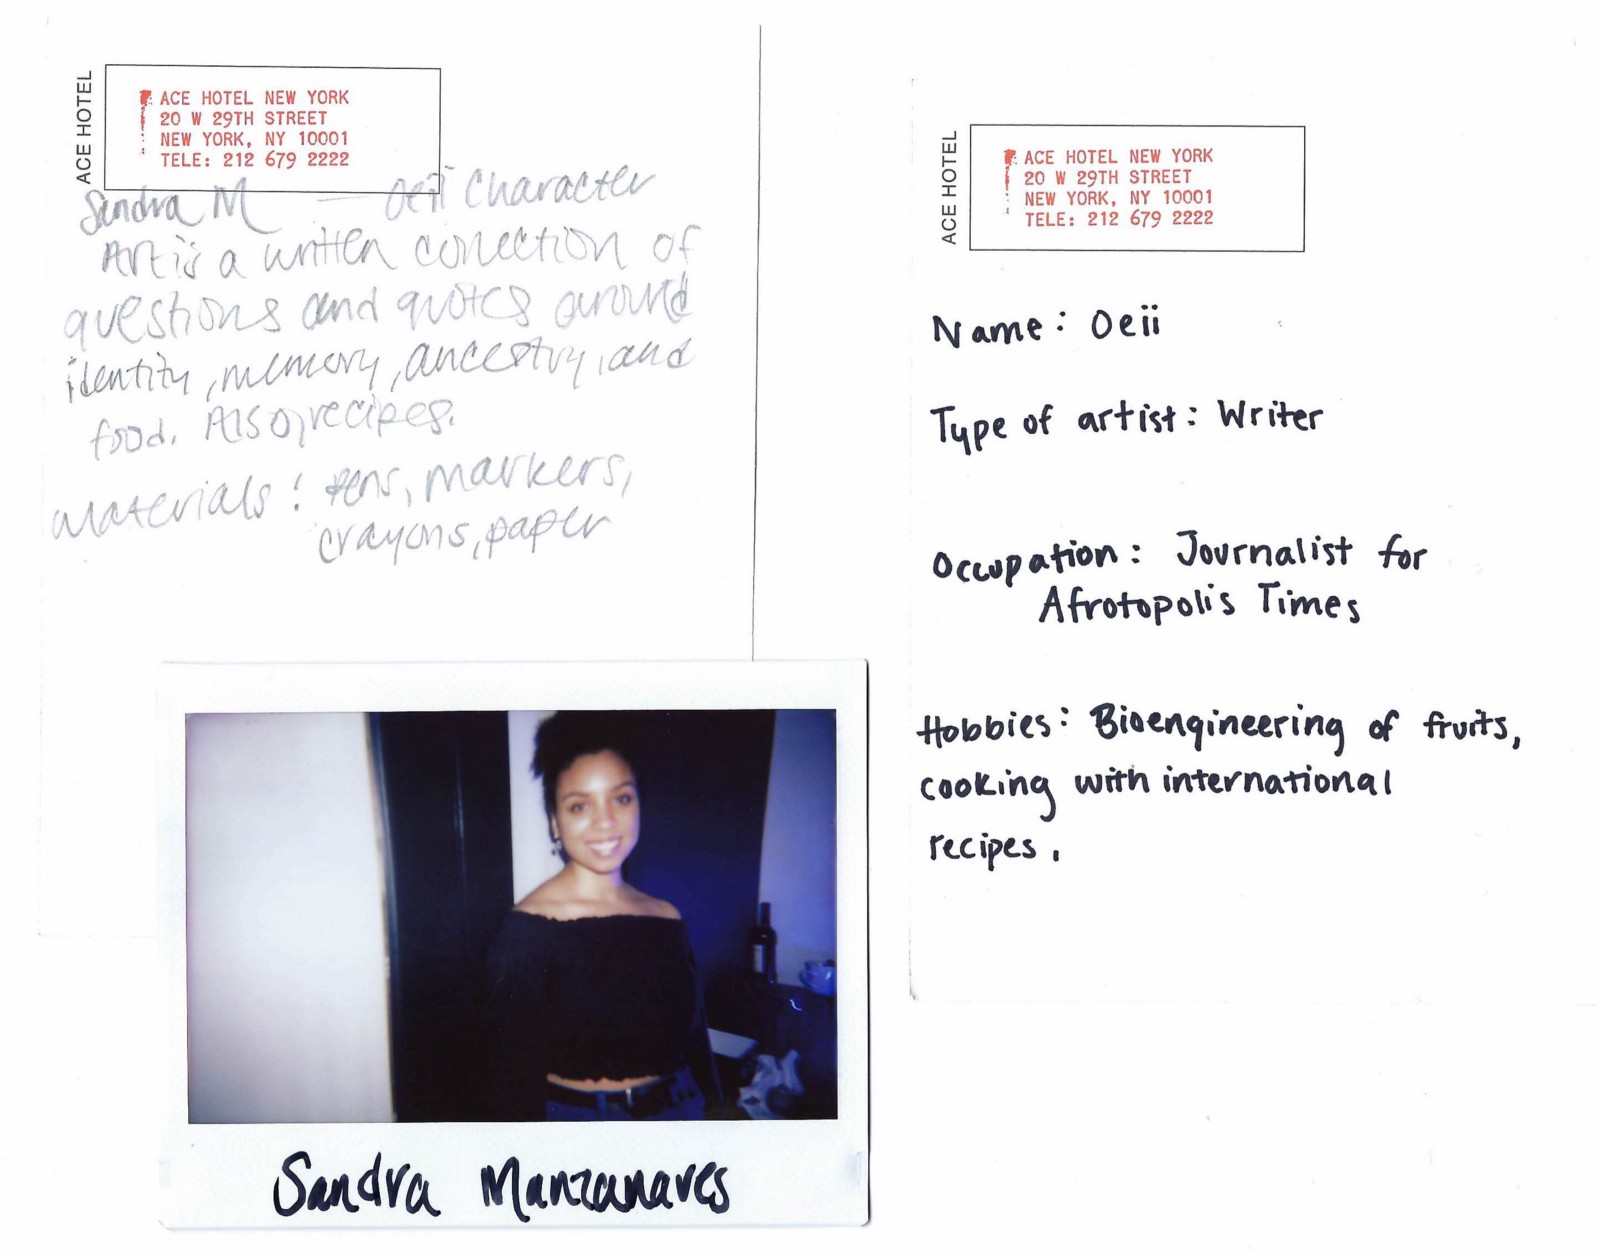 ACE HOTEL
ACE HOTEL NEW YORK
20 W 29TH STREET
NEW YORK, NY 10001
TELE: 212 679 2222
Sandra M — Oeii Character
Art is a written collection of
questions and quotes around
identity, memory, ancestry, and
food. Also, recipes.
Materials: Pens, markers,
crayons, paper
Sandra Manzanares
ACE HOTEL
ACE HOTEL NEW YORK
20 W 29TH STREET
NEW YORK, NY 10001
TELE: 212 679 2222
Name: Oeii
Type of artist: Writer
Occupation: Journalist for
Afrotopolis Times
Hobbies: Bioengineering of fruits,
cooking with international
recipes.